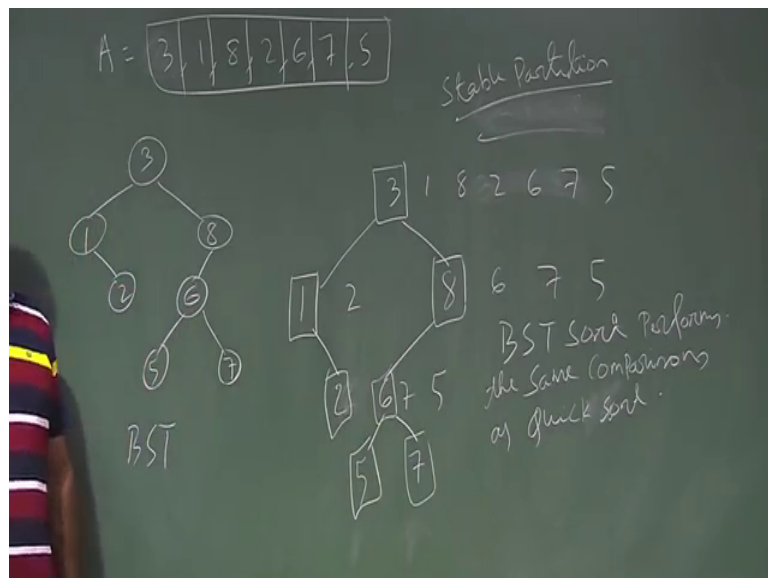 A = 3 1 8 2 6 7 5
Stable Partition
3
1 8
2 6
5 7
BST
3 1 8 2 6 7 5
1 2 8 6 7 5
2 6 7 5
5 7
BST Sort Performs.
the same Comparisons
as Quick sort.